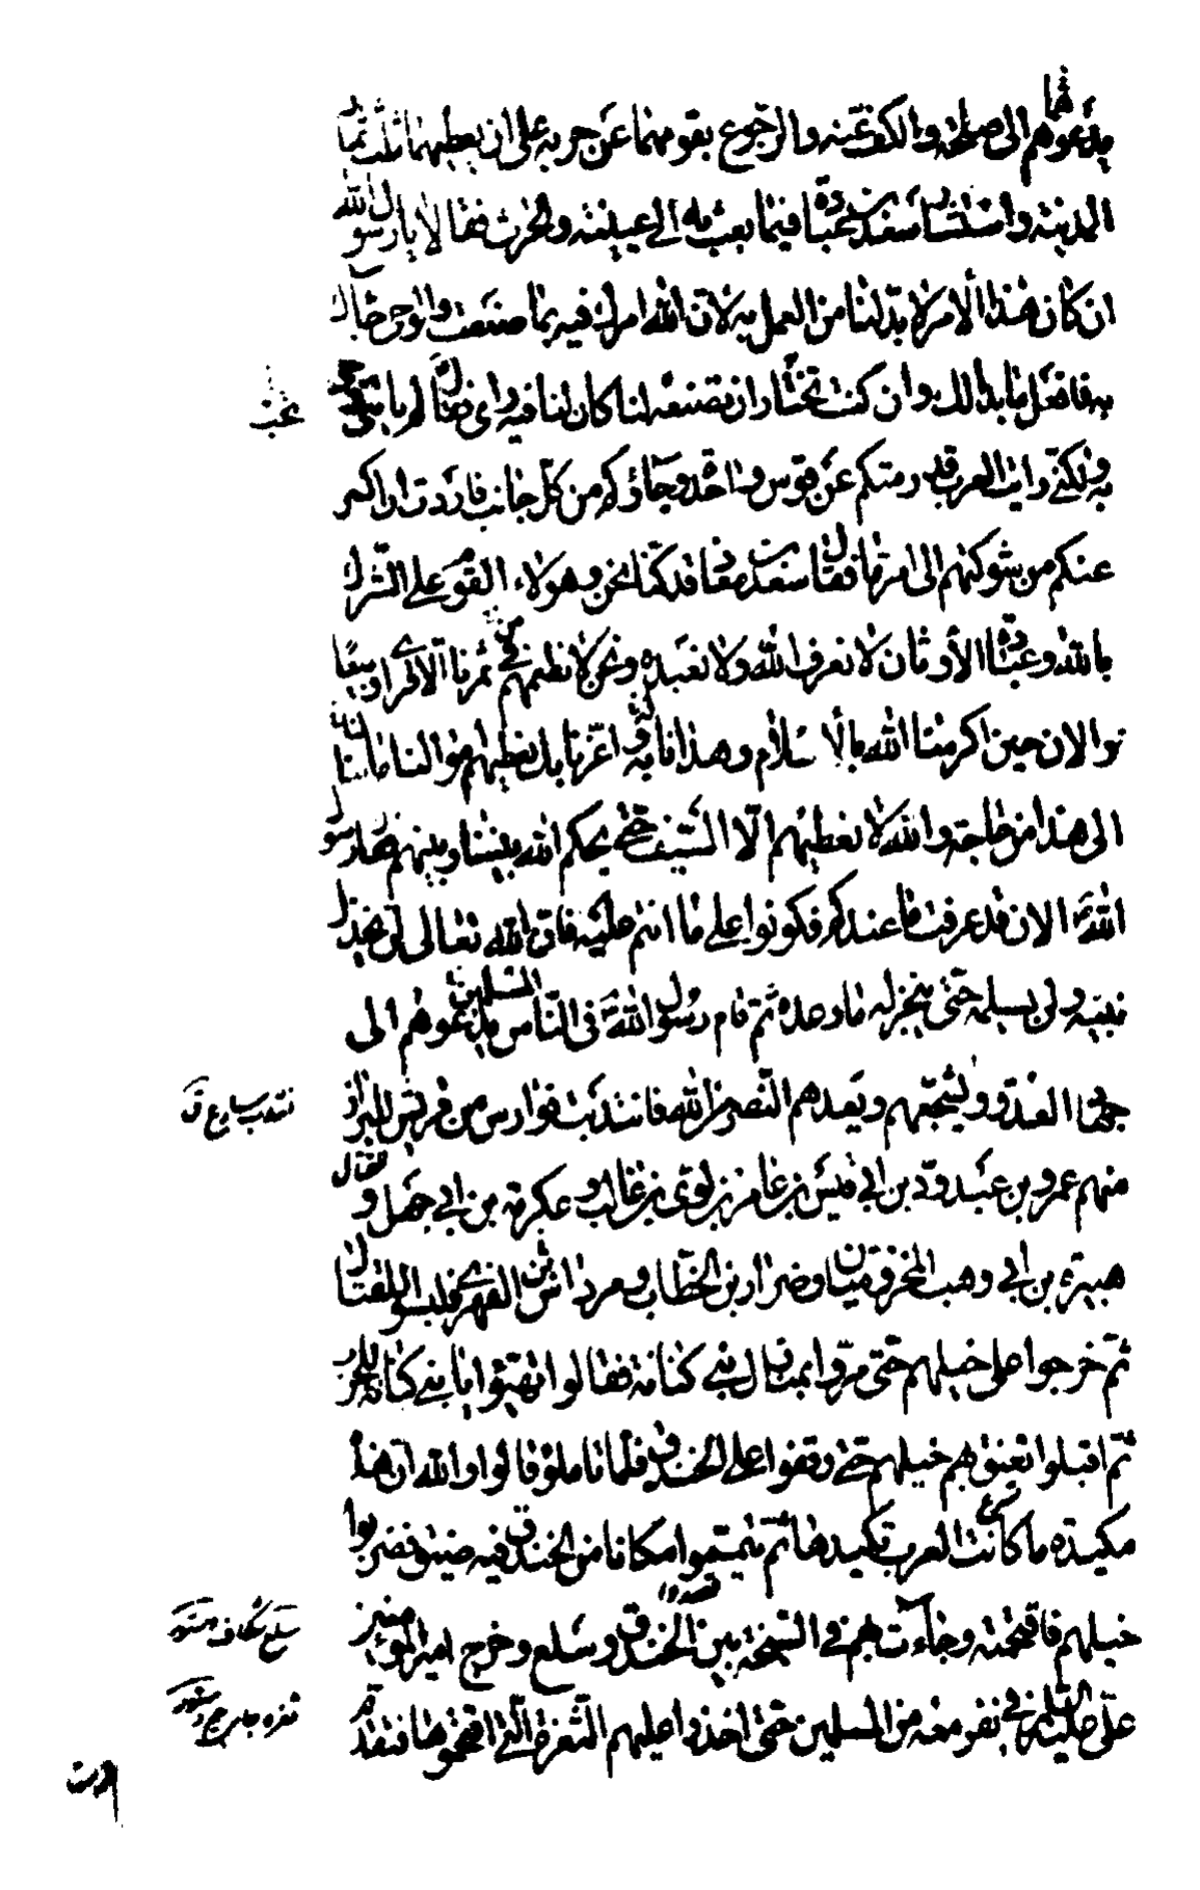 يدعوهما الى صلحه والكف عنه والرجوع بقومهما عن حربه على ان يعطيهما ثلث ثمار
المدينة واستشار سعد بن عبادة فيما بعث به الى عيينة والحرث فقالا يا رسول الله
ان كان هذا الامر لا بد لنا من العمل به لان الله امرك فيه بما صنعت والوحى جاءك
به فافعل ما بدا لك وان كنت تختار ان تصنعه لنا كان لنا فيه راى فقال لم ياتنى وحى
به ولكنى رايت العرب قد رمتكم عن قوس واحدة وجاؤكم من كل جانب فاردت ان اكسر
عنكم من شوكتهم الى امر ما فقال سعد بن معاذ قد كنا نحن وهؤلاء القوم على الشرك
بالله وعبادة الأوثان لا نعرف الله ولا نعبده ونحن لا نطعمهم من ثمرنا الا قرى او بيعا
والان حين اكرمنا الله بالاسلام وهدانا به واعزنا بك نعطيهم اموالنا ما لنا
الى هذا من حاجة والله لا نعطيهم الا السيف حتى يحكم الله بيننا وبينهم فقال رسول
الله الان قد عرفت ما عندكم فكونوا على ما انتم عليه فان الله تعالى لن يخذل
نبيه ولن يسلمه حتى ينجز له ما وعده ثم قام رسول الله فى المسلمين يدعوهم الى
جهاد العدو ويشجعهم ويعدهم النصر من الله فانتدبت فوارس من قريش للبراز
منهم عمرو بن عبد ود بن ابي قيس بن عامر بن لوى بن غالب وعكرمة بن ابي جهل و
هبيرة بن ابي وهب المخزوميان وضرار بن الخطاب ومرداس الفهرى فلبسوا للقتال
ثم خرجوا على خيلهم حتى مروا بمنازل بنى كنانة فقالوا تهيئوا يا بنى كنانة للحرب
ثم اقبلوا تعنق بهم خيلهم حتى وقفوا على الخندق فلما تاملوه قالوا والله ان هذه
مكيدة ما كانت العرب تكيدها ثم تيمموا مكانا من الخندق فيه ضيق فضربوا
خيلهم فاقتحمته وجاءت بهم فى السبخة بين الخندق وسلع وخرج امير المؤمنين
على عليه السلام فى نفر معه من المسلمين حتى اخذوا عليهم الثغرة التى اقتحموها فتقدم